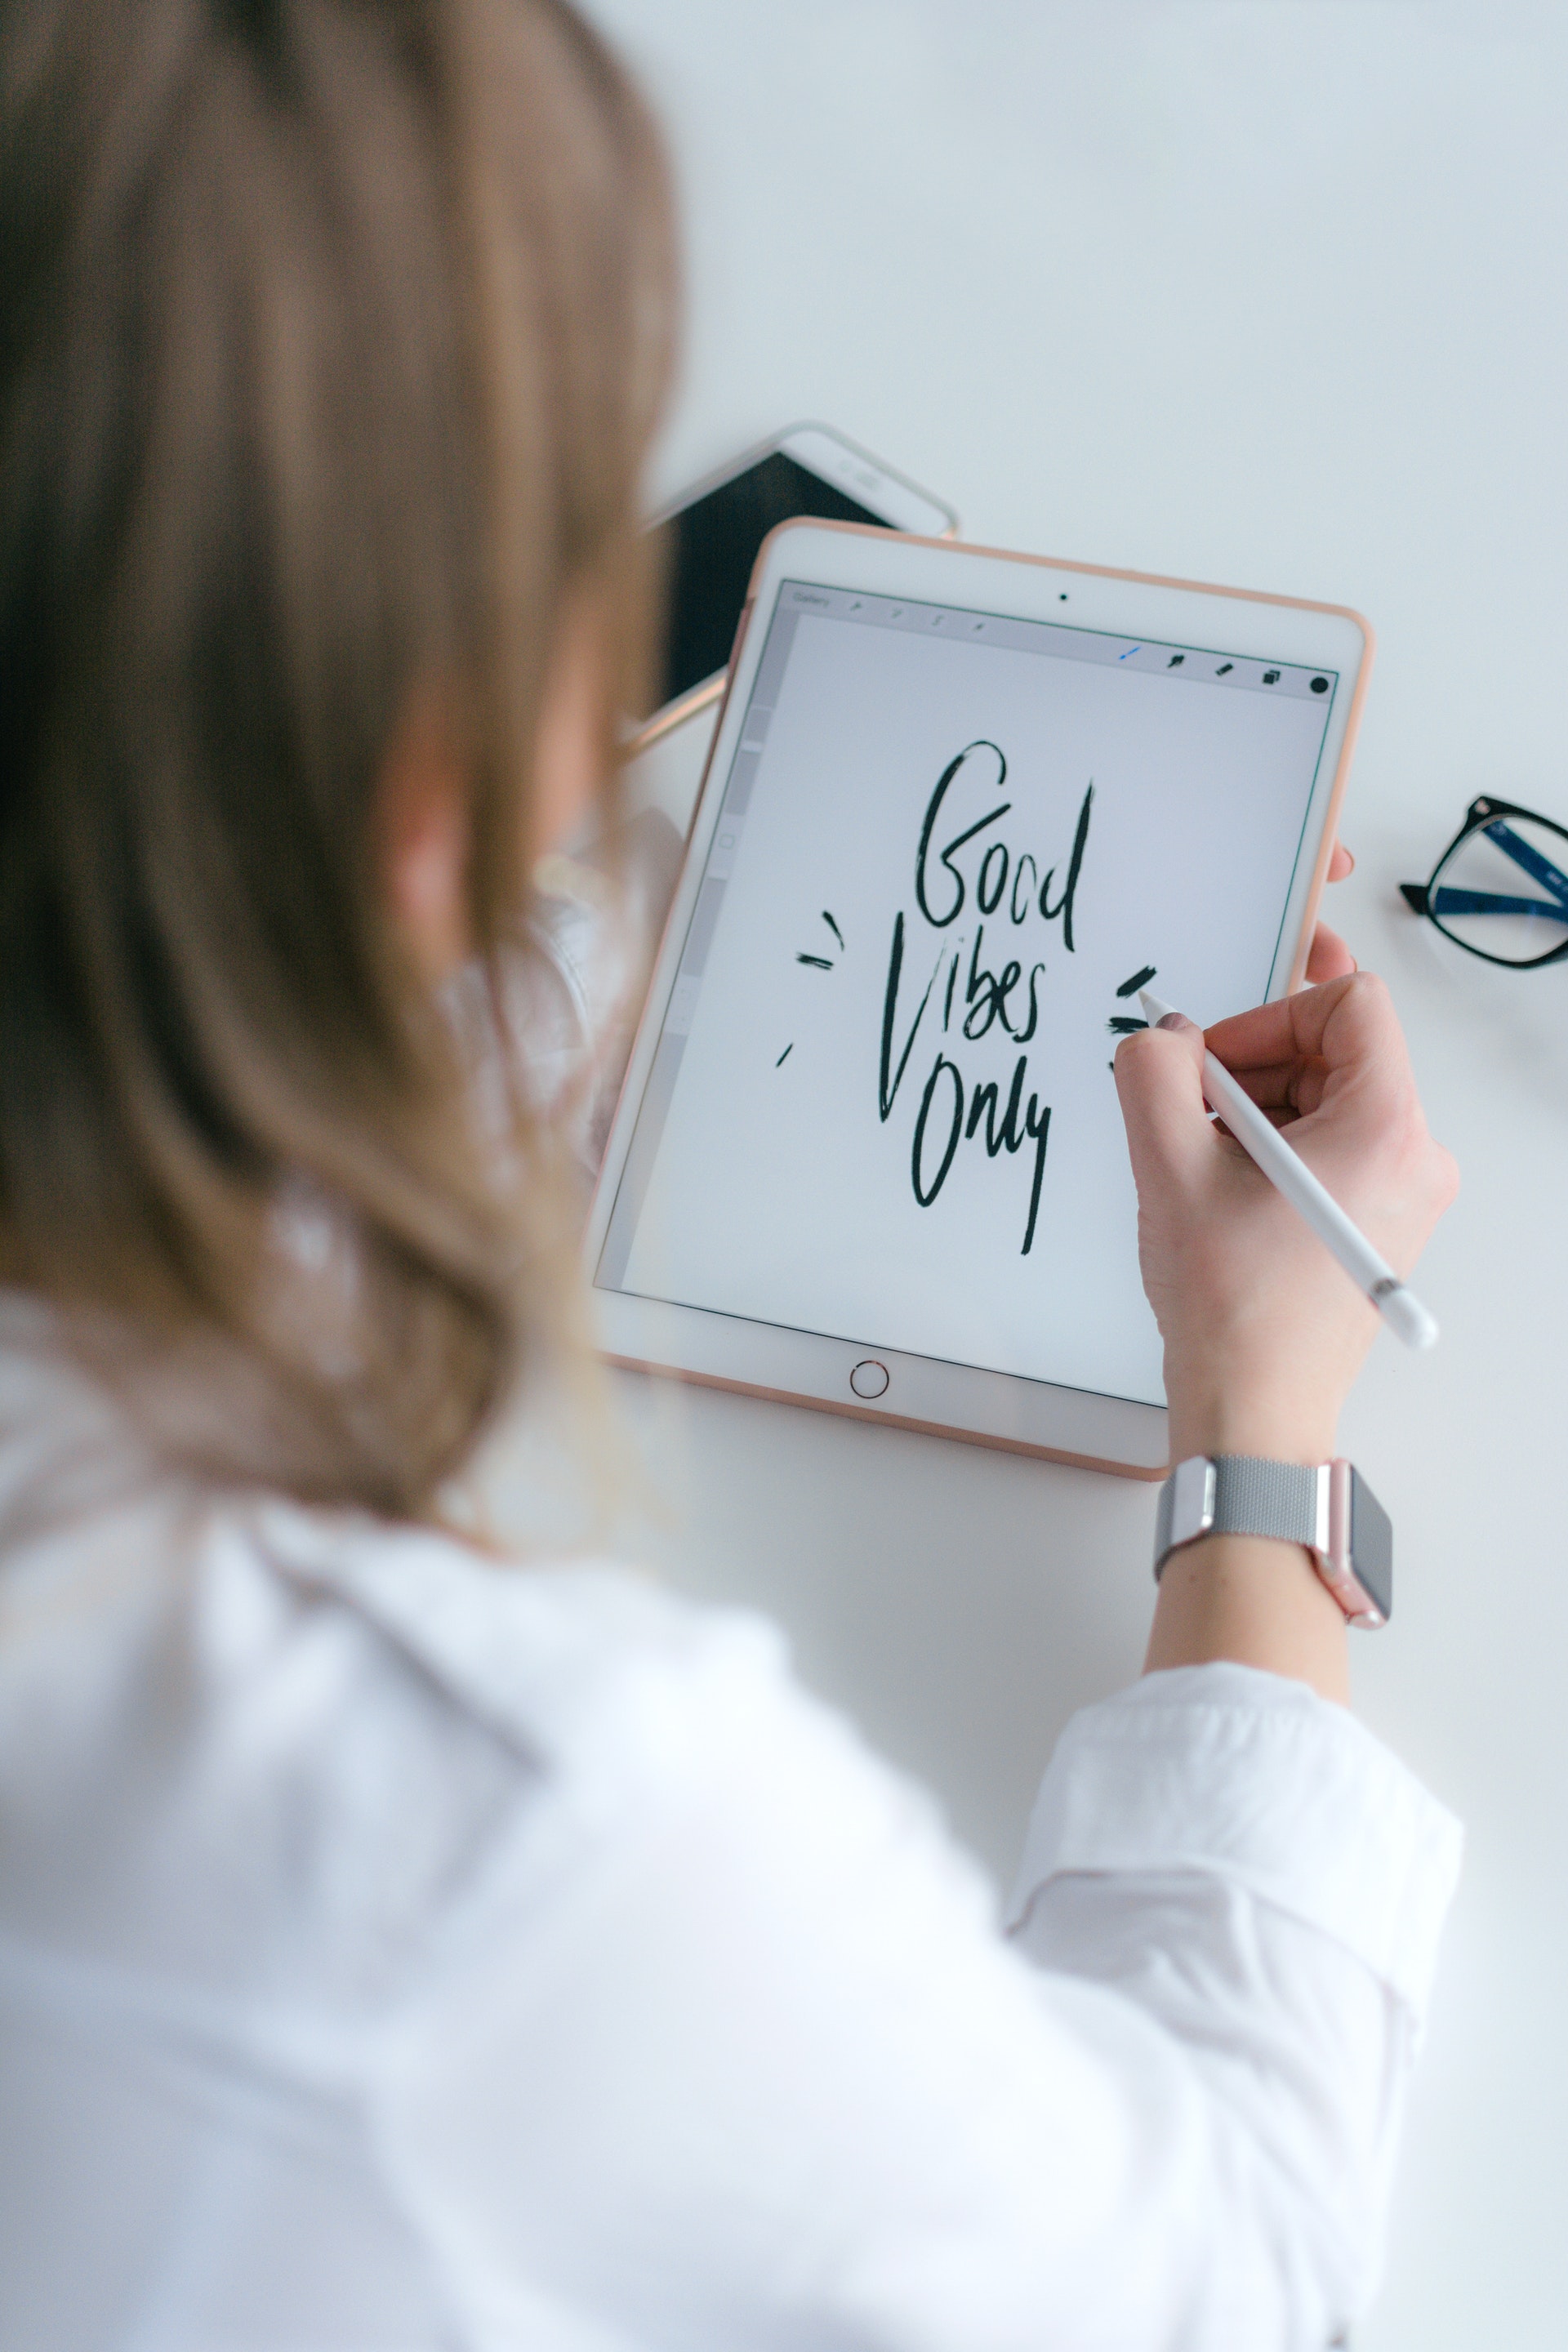 Gallery
Good
Vibes
Only